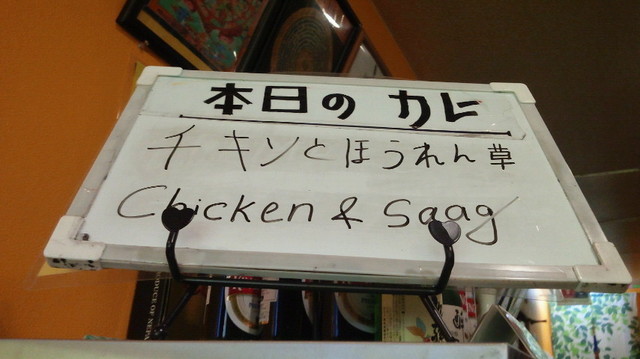 本日の カレー
チキンとほうれん草
Chicken & Saag